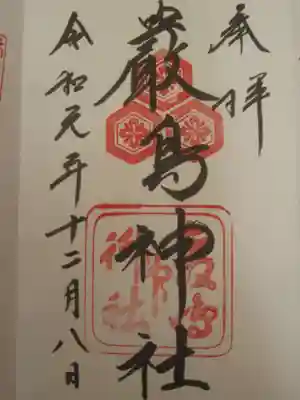 奉拝
厳島神社
令和元年十二月八日
厳島
神社